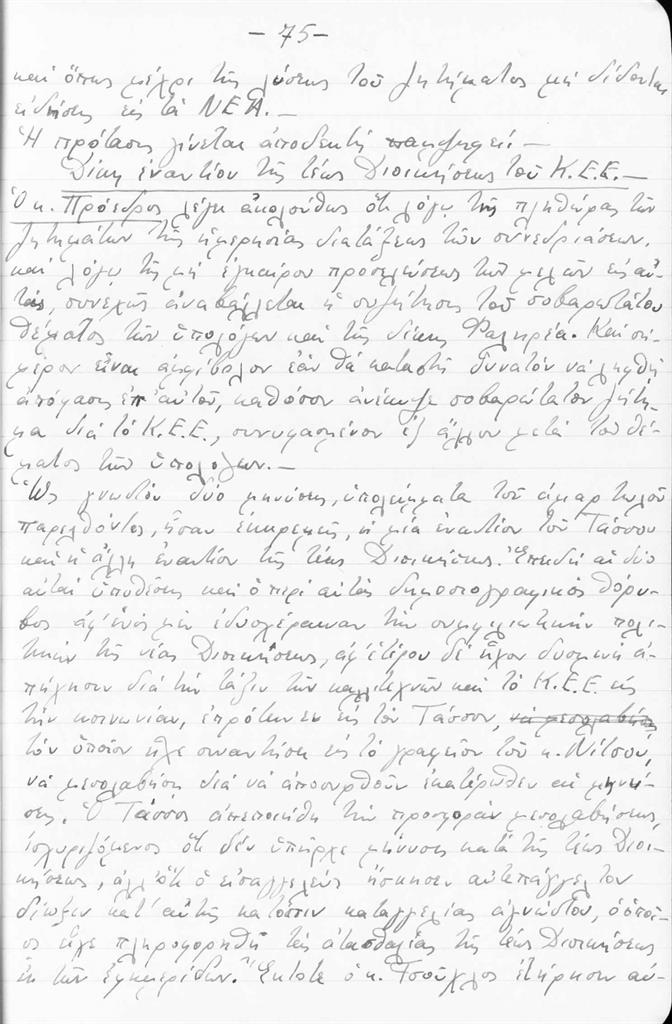 - 75 -
καὶ ὅπως μέχρι τῆς λύσεως τοῦ ζητήματος μὴ δίδονται
εἰδήσεις εἰς τὰ ΝΕΑ. —
Ἡ πρότασις γίνεται ἀποδεκτὴ παμψηφεί. —
Δίκη ἐναντίον τῆς τέως Διοικήσεως τοῦ Κ.Ε.Ε. —
Ὁ κ. Πρόεδρος λέγει ἀκολούθως ὅτι λόγῳ τῆς πληθώρας τῶν
ζητημάτων τῆς ἡμερησίας διατάξεως τῶν συνεδριάσεων,
καὶ λόγῳ τῆς μὴ ἐγκαίρου προσελεύσεως τῶν μελῶν εἰς αὐ-
τάς, συνεχῶς ἀναβάλλεται ἡ συζήτησις τοῦ σοβαρωτάτου
θέματος τῶν ὑπολόγων καὶ τῆς δίκης Φαληρέα. Καὶ σή-
μερον εἶναι ἀμφίβολον ἐὰν θὰ καταστῇ δυνατὸν νὰ ληφθῇ
ἀπόφασις ἐπ' αὐτοῦ, καθόσον ἀνέκυψε σοβαρώτατον ζήτη-
μα διὰ τὸ Κ.Ε.Ε., συνυφασμένον ἐξ ἄλλου μετὰ τοῦ θέ-
ματος τῶν ὑπολόγων. —
Ὡς γνωστὸν δύο μηνύσεις, ὑπολείμματα τοῦ ἁμαρτωλοῦ
παρελθόντος, ἦσαν ἐκκρεμεῖς, ἡ μία ἐναντίον τοῦ Τάσσου
καὶ ἡ ἄλλη ἐναντίον τῆς τέως Διοικήσεως. Ἐπειδὴ αἱ δύο
αὐταὶ ὑποθέσεις καὶ ὁ περὶ αὐτὰς δημοσιογραφικὸς θόρυ-
βος ἀφ' ἑνὸς μὲν ἐδυσχέραιναν τὴν συμφιλιωτικὴν πολι-
τικὴν τῆς νέας Διοικήσεως, ἀφ' ἑτέρου δὲ εἶχον δυσμενῆ ἀ-
πήχησιν διὰ τὴν τάξιν τῶν καλλιτεχνῶν καὶ τὸ Κ.Ε.Ε. εἰς
τὴν κοινωνίαν, ἐπρότεινεν εἰς τὸν Τάσσον, νὰ μεσολαβήσῃ
τὸν ὁποῖον εἶχε συναντήσει εἰς τὸ γραφεῖον τοῦ κ. Νίτσου,
νὰ μεσολαβήσῃ διὰ νὰ ἀποσυρθοῦν ἑκατέρωθεν αἱ μηνύ-
σεις. Ὁ Τάσσος ἀπεποιήθη τὴν προσφορὰν μεσολαβήσεως,
ἰσχυριζόμενος ὅτι δὲν ὑπῆρχε μήνυσις κατὰ τῆς τέως Διοι-
κήσεως, ἀλλ' ὅτι ὁ εἰσαγγελεὺς ἤσκησεν αὐτεπάγγελτον
δίωξιν κατ' αὐτῆς κατόπιν καταγγελίας ἀγνώστου, ὁ ὁποῖ-
ος εἶχε πληροφορηθῆ τὰς ἀτασθαλίας τῆς τέως Διοικήσεως
ἐκ τῶν ἐφημερίδων. Ἔκτοτε ὁ κ. Τσούχλος ἐτήρησεν αὐ-